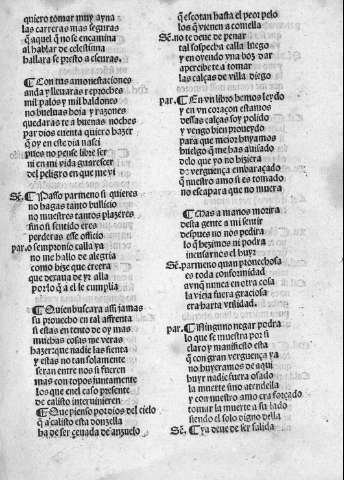 quiero tomar muy ayna
las carreras mas seguras
q̃ aquel q̃ no se encamina
al hablar de celestina
hallara se presto a escuras.
¶ Con tus amonestaciones
anda y lleuaras reproches
mil palos y mil baldones
no bueluas hoja y razones
quedaras te a buenas noches
par dios cuenta quiero hazer
q̃ oy en este dia nasci
pues no pense libre ser
ni en mi vida guarescer
del peligro en que me vi
Sẽ. ¶ Passo parmeno si quieres
no hagas tanto bullicio
no muestres tantos plazeres
sino si sentido eres
perderas esse officio
par. o sempronio calla ya
no me hallo de alegria
como hize que creera
que dexaua de yr alla
por lo q̃ a el le cumplia
¶ Quien buscara assi jamas
su prouecho en tal affrenta
si estas en tento de oy mas
muchas cosas me veras
hazer: que nadie las sienta
y estas no tan solamente
seran entre nos si fueren
mas con topos juntamente
los que en el caso presente
de calisto interuinieren
¶ Que pienso por dios del cielo
q̃ a calisto esta donzella
ha de ser ceuada de anzuelo
q̃ escotan hasta el peor pelo
los q̃ vienen a comella
Sẽ. no te deue de penar
tal sospecha calla luego
y en oyendo vna boz dar
apercibe te a tomar
las calças de villa diego
par. ¶ En vn libro hemos leydo
y en vn coraçon estamos
dessas calças soy polido
y vengo bien proueydo
para que mejor huyamos
huelgo q̃ me has auisado
delo que yo no hiziera
d̃ verguença embaraçado
q̃ nuestro amo si es tomado
no escapara que no muera
¶ Mas a manos morira
desta gente a mi sentir
despues no nos pedira
lo q̃ hezimos ni podra
incusarnos el huyr
Sẽ. parmeno quan prouechosa
es toda conformidad
avnq̃ nunca en otra cosa
la vieja fuera graciosa
era harta vtilidad.
par. ¶ Ninguno negar podra
lo que se muestra por si
claro y manifiesto esta
q̃ con gran verguença ya
no huyeramos de aqui
huyr nadie fuera osado
la muerte sino atendella
y con nuestro amo era forçado
tomar la muerte a su lado
siendo el solo digno della
Sẽ. ¶ Ya deue de ser salida